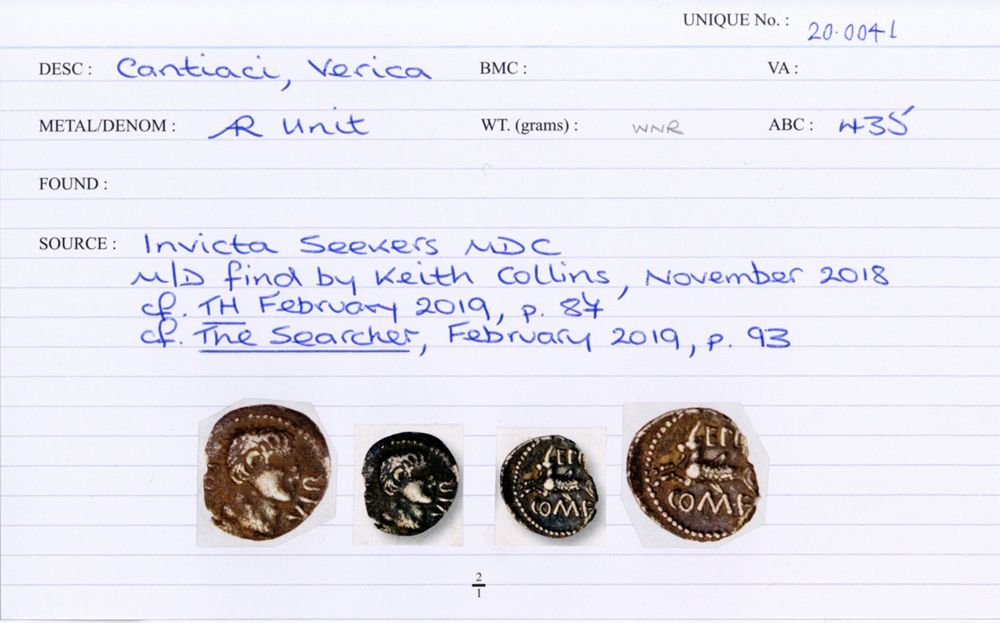 UNIQUE No. : 20.0041
DESC : Cantiaci, Verica BMC : VA :
METAL/DENOM : AR Unit WT. (grams) : WNR ABC : 435
FOUND :
SOURCE : Invicta Seekers MDC
M/D find by Keith Collins, November 2018
cf. TH February 2019, p. 87
cf. The Searcher, February 2019, p. 93
EPP
COMF
2
1